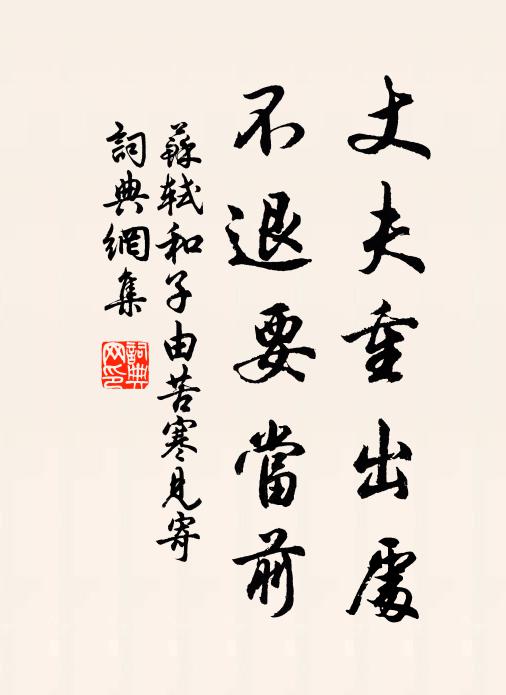 丈夫重出處
不退要當前
蘇軾和子由苦寒見寄
詞典網集
詞典網印